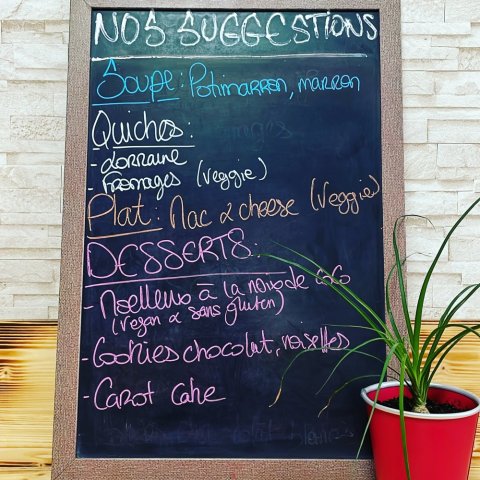 NOS SUGGESTIONS
Soupe : Potimarron, marron
Quiches :
- Lorraine
- Fromages (veggie)
Plat : Mac & cheese (Veggie)
DESSERTS :
- Moelleux à la noix de coco
(vegan & sans gluten)
- Cookies chocolat, noisettes
- Carot cake